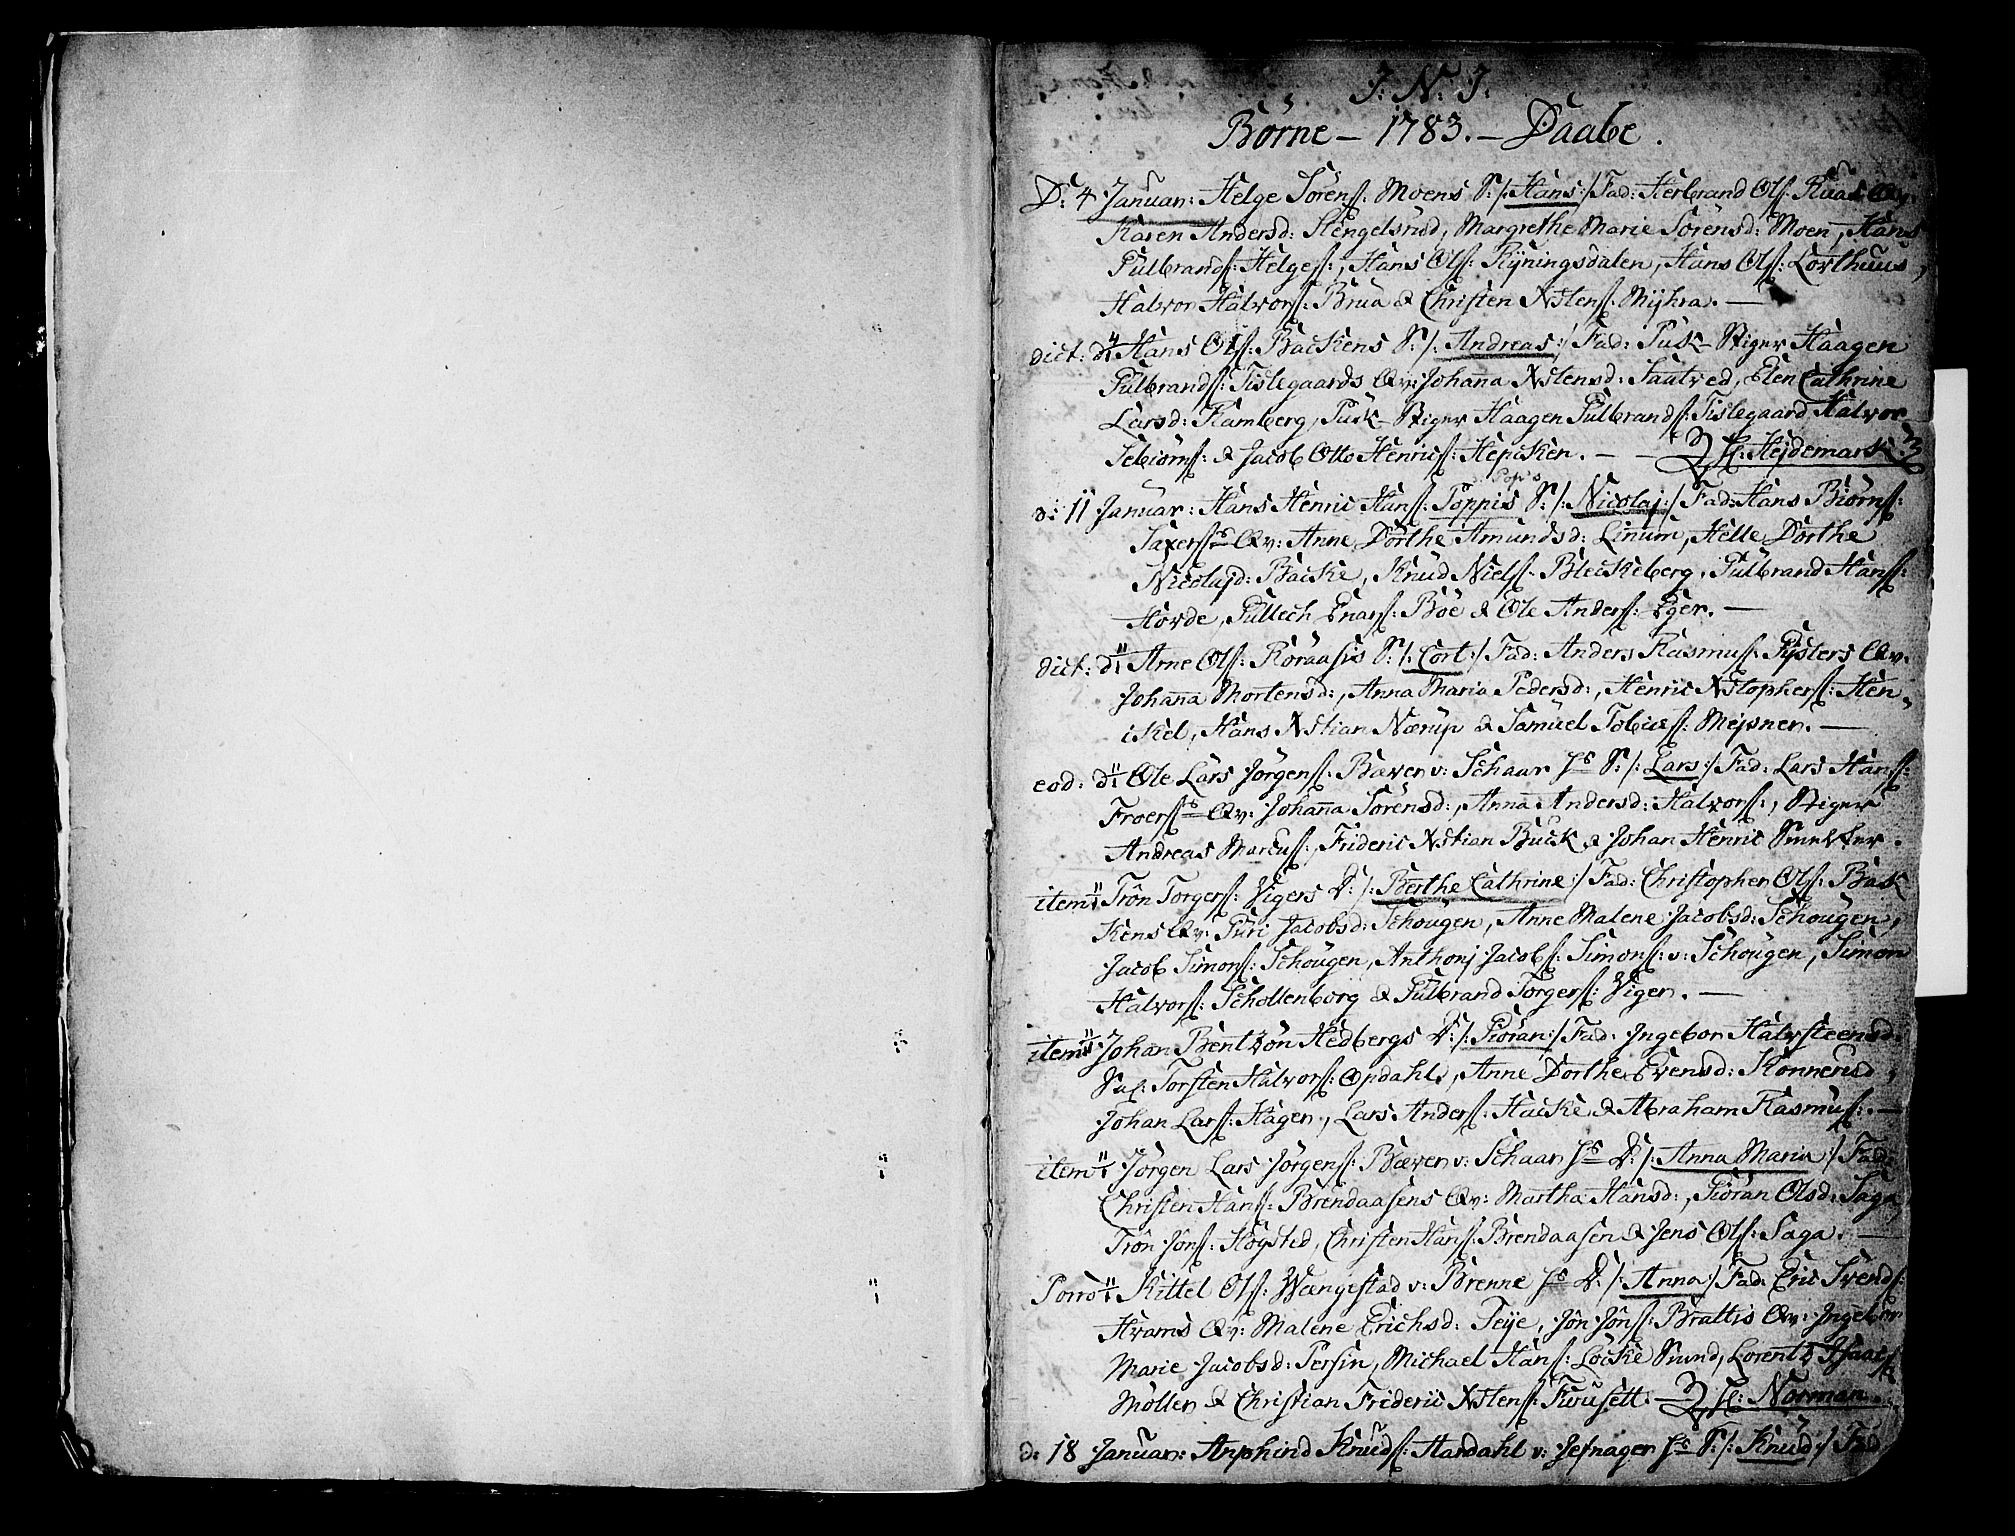 J: N: J:
Börne – 1783. – Daabe.
D: 4 Januar: Helge Sörenſ: Moens S: /: Hans :/ Fad: Herbrand Olſ: Ruas Qv:
Karen Andersd: Stengelsrud, Margrethe Marie Sörensd: Moen, Hans
Gulbrandſ: Helgeſ:, Hans Olſ: Ryningsdalen, Hans Olſ: Corthuus,
Halvor Halvorſ: Brua & Christen Xstenſ: Myhra. —
dict: d: 4 Hans Olſ: Backens S: /: Andreas :/ Fad: Puk-Stiger Haagen
Gulbrandſ: Tislegaards Qv: Johana Xstensd: Sautved, Elen Cathrine
Larsd: Ramberg, Puk-Stiger Haagen Gulbrandſ: Tislegaard Halvor
Tebiörnſ: & Jacob Otto Henricſ: Hepicken. — — H: Hejdemark:
Pop's
d: 11 Januar: Hans Henric Hanſ: Poppis S: /: Nicolaj :/ Fad: Hans Biörnſ:
Saxerſ: Qv: Anne Dorthe Amundsd: Linum, Helle Dorthe
Nicolajd: Backe, Knud Nielſ: Bleckeberg, Gulbrand Hanſ:
Hovde, Gullech Enarſ: Böe & Ole Anderſ: Eger. —
dict: d: 11 Arne Olſ: Roraasis S: /: Cort :/ Fad: Anders Rasmuſ: Rysters Qv.
Johana Mortensd:, Anna Maria Pedersd:, Henric Xstopherſ: Hen-
ikel, Hans Xstian Nærup & Samuel Tobiæſ: Meisner. —
eod: d: 11 Ole Lars Jörgenſ: Bæver v: Schaar Hs S: /: Lars :/ Fad: Lars Hanſ:
Froerſ: Qv: Johana Sörensd:, Anna Andersd: Halvorſ:, Stiger
Andreas Marcuſ:, Frideric Xstian Buck & Johan Henric Smelter.
item 11 Trön Torgerſ: Vigers D: /: Berthe Cathrine :/ Fad: Christopher Olſ: Bak
kens Qv: Guri Jacobsd: Schougen, Anne Malene Jacobsd: Schougen,
Jacob Simonſ: Schougen, Anthonj Jacobſ: Simonſ: v: Schougen, Simon
Halvorſ: Schollenborg & Gulbrand Torgerſ: Viger. —
item 11 Johan Bentzön Hedbergs D: /: Giöran :/ Fad: Ingebor Halvsteensd:
Sal: Torsten Halvorſ: Opdahls, Anne Dorthe Evensd: Konnerud,
Johan Larſ: Hagen, Lars Anderſ: Hacke & Abraham Rasmuſ:. —
item 11 Jörgen Lars Jörgenſ: Bæver v: Schaar Hs D: /: Anna Maria :/ Fad:
Christen Hanſ: Brendaasens Qv: Martha Hansd:, Giöran Olsd: Saga,
Trön Jönſ: Hogsted, Christen Hanſ: Brendaasen & Jens Olſ: Saga. —
Porro 11 Kittel Olſ: Wængestad v: Brenne Hs D: /: Anna :/ Fad: Eric Svendſ:
Hvams Qv: Malene Erichsd: Teije, Jön Jönſ: Brattis Qv: Ingebor
Marie Jacobsd: Persin, Michael Hanſ: Locke Smed, Lorentz Isaacſ:
Möller & Christian Frideric Xstenſ: Furusett. — H: Norman.
d: 18 Januar: Anphind Knudſ: Hardahl v: Jefnager Hs S: /: Knud :/ Fad